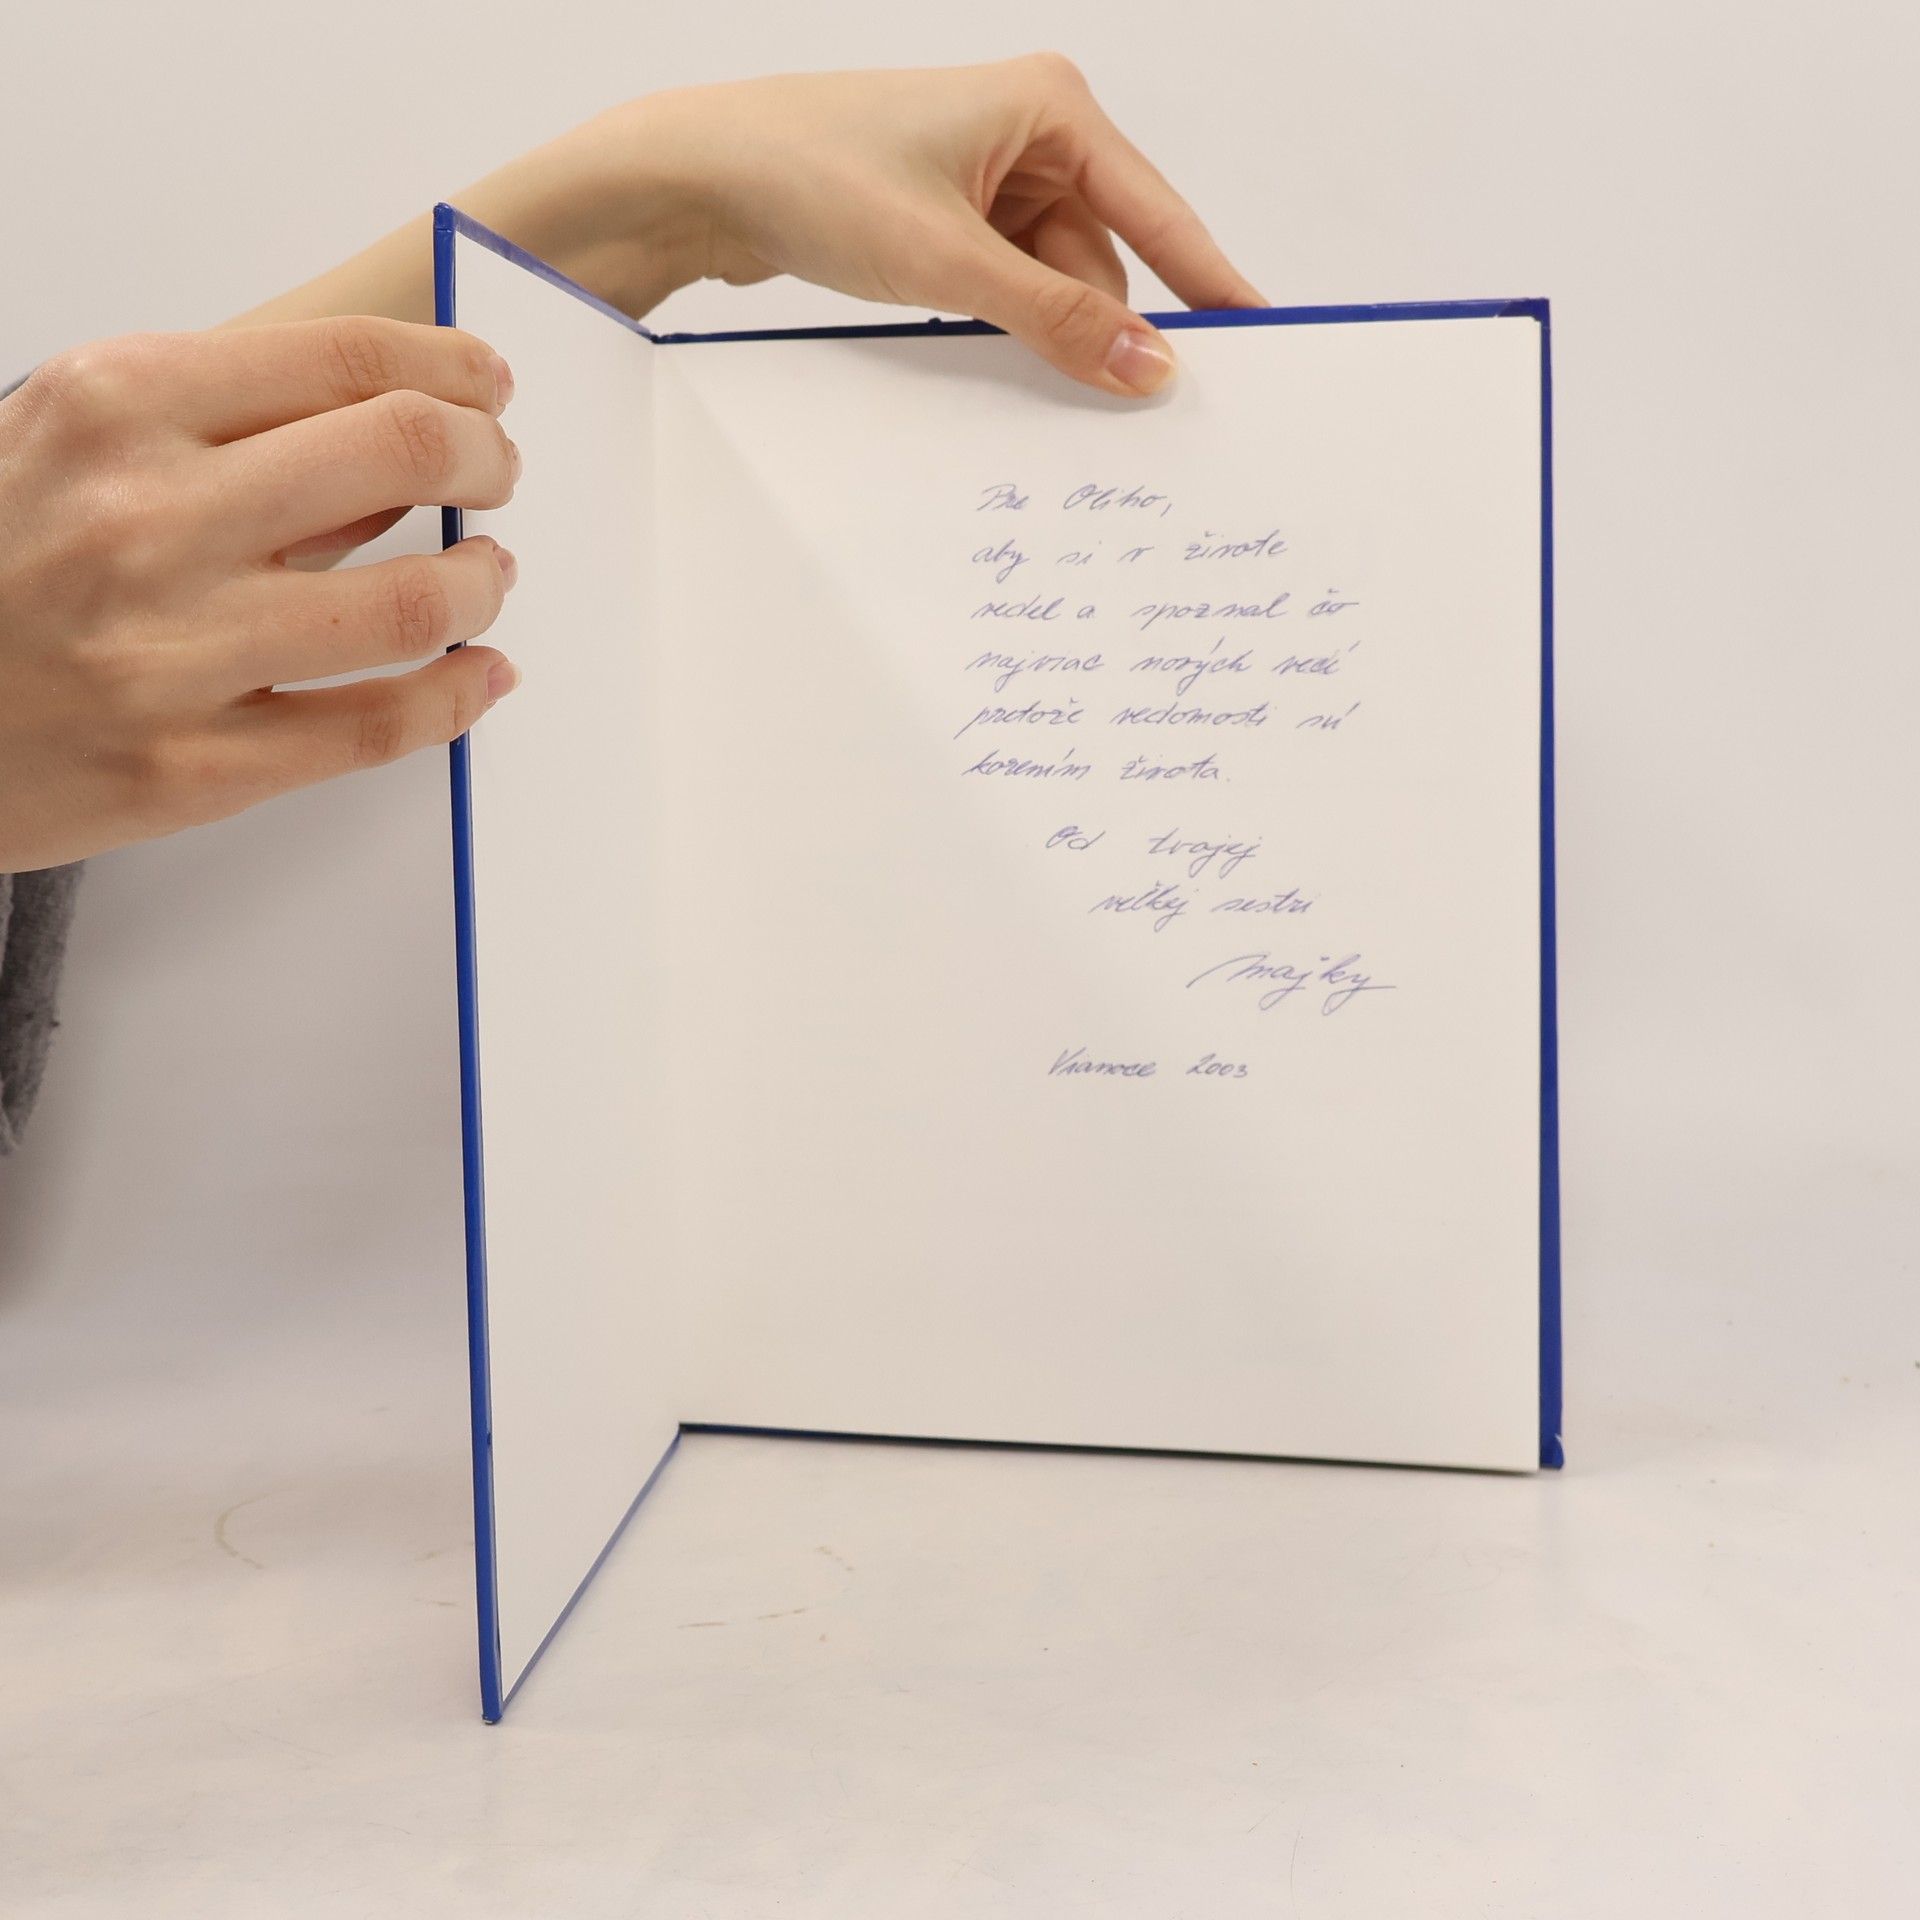 Pre Oliho,
aby si v živote
vedel a spoznal čo
najviac nových vecí
pretože vedomosti sú
korením života.
Od tvojej
veľkej sestri
Majky
Vianoce 2003